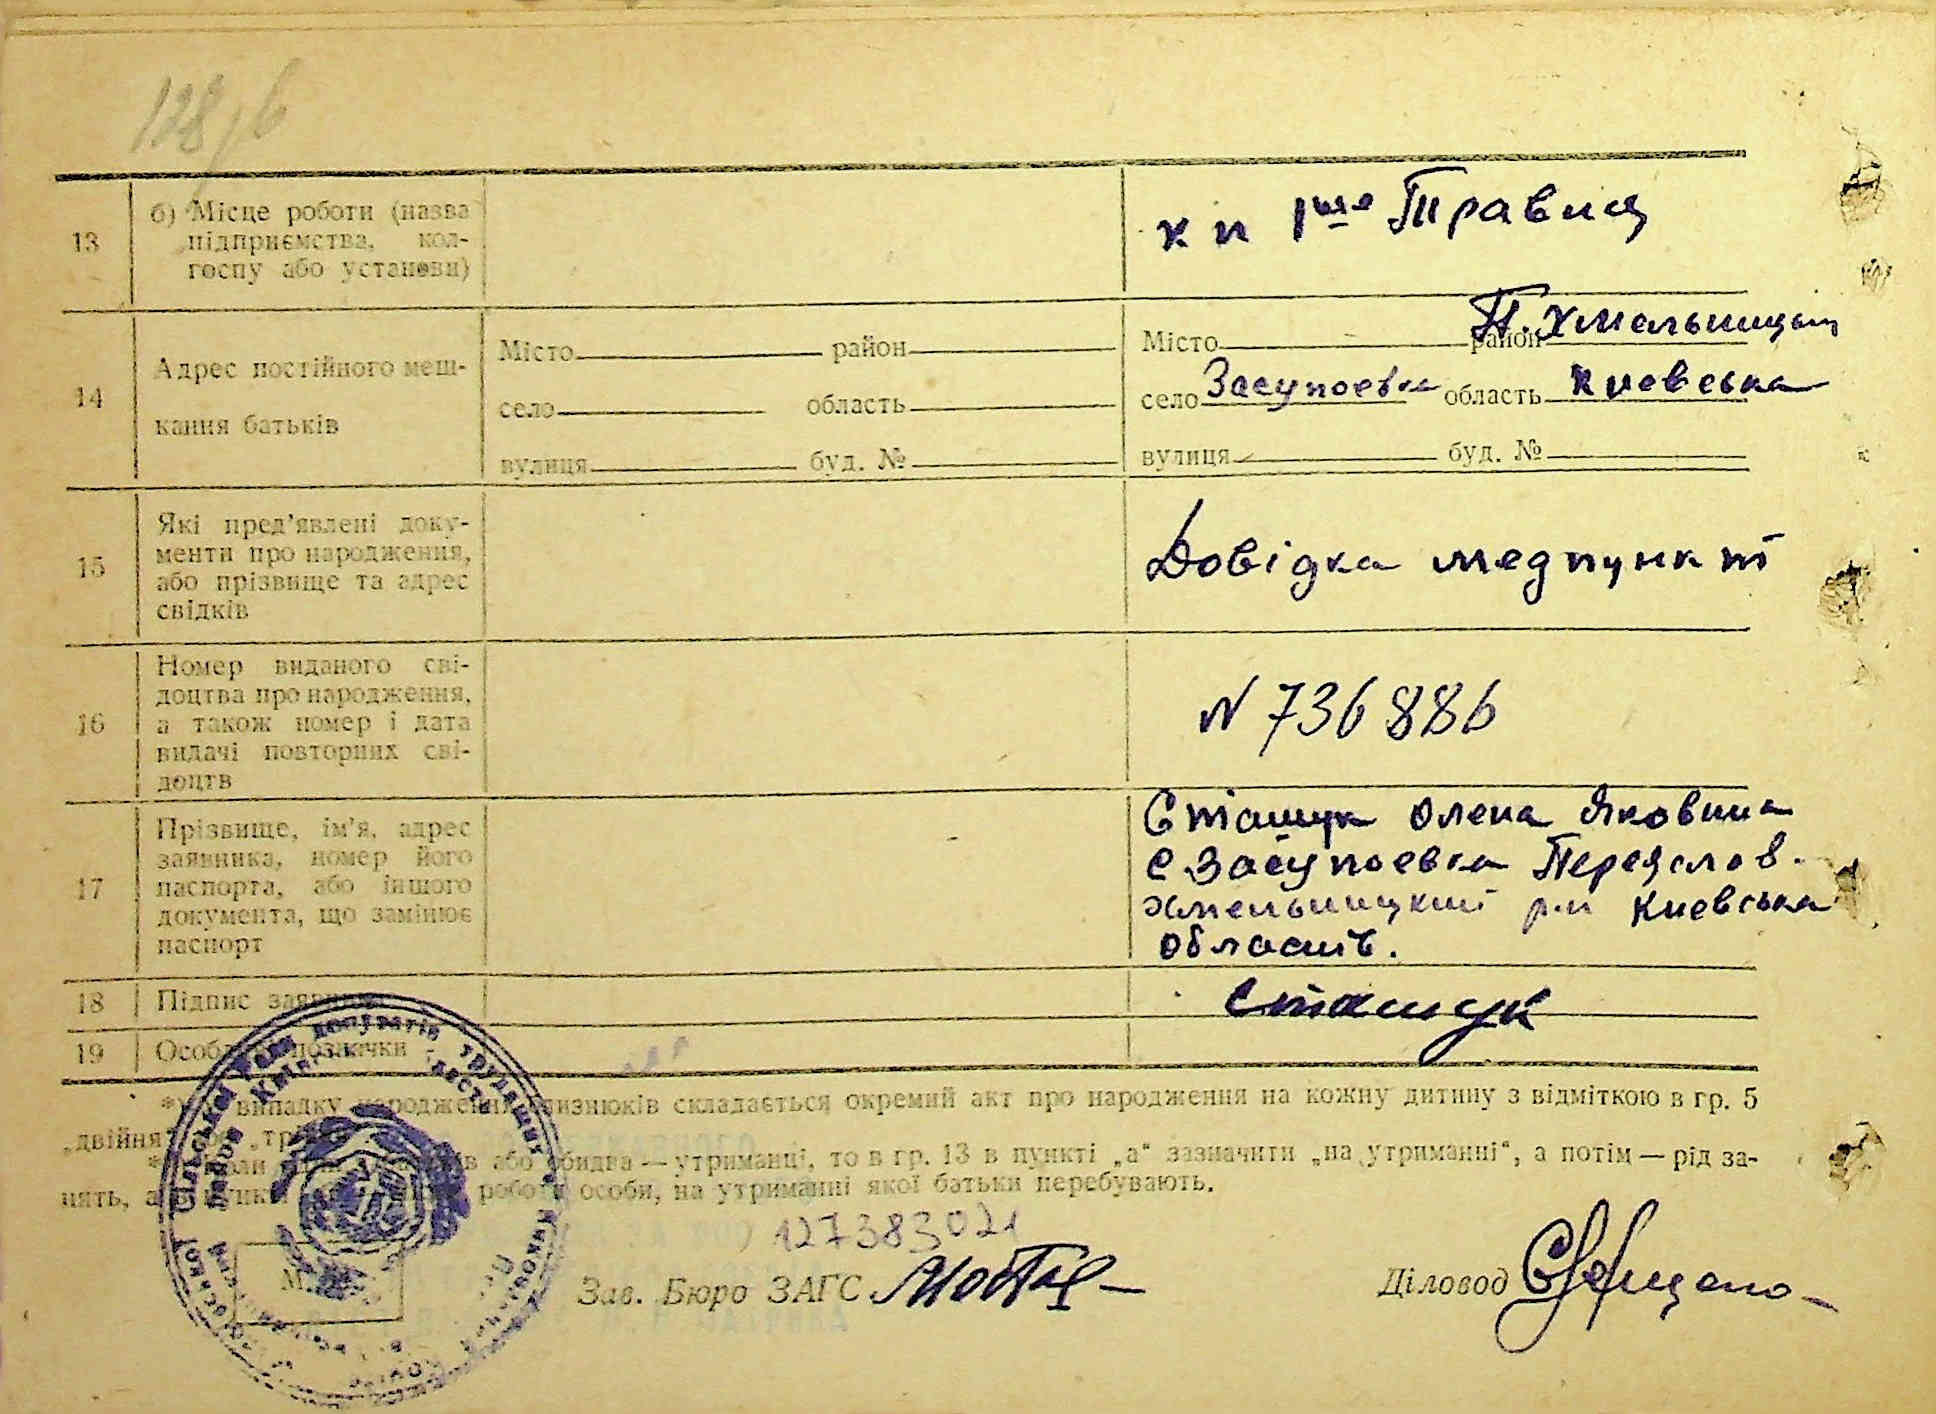 128/6
13 б) Місце роботи (назва
підприємства, кол-
госпу або установи)
к п 1ше Травня
14 Адрес постійного меш-
кання батьків
Місто район
село область
вулиця буд. №
Місто район П. Хмельницьки
село Засупоевка область Киевська
вулиця буд. №
15 Які пред'явлені доку-
менти про народження,
або прізвище та адрес
свідків
Довідка медпункт
16 Номер виданого сві-
доцтва про народження,
а також номер і дата
видачі повторних сві-
доцтв
N 736886
17 Прізвище, ім'я, адрес
заявника, номер його
паспорта, або іншого
документа, що замінює
паспорт
Сташук Олена Яковина
с Засупоевка Переяслов.
Хмельницкий р-н Киевська
область.
18 Підпис заявника
Сташук
19 Особливі позначки
*) У випадку народження близнюків складається окремий акт про народження на кожну дитину з відміткою в гр. 5
„двійня" або „трійня"
або обидва — утриманці, то в гр. 13 в пункті „а" зазначити „на утриманні", а потім — рід за-
нять, а в пункті роботи особи, на утриманні якої батьки перебувають.
127383021
Зав. Бюро ЗАГС
Діловод
М.
Сільської Ради депутатів трудящих